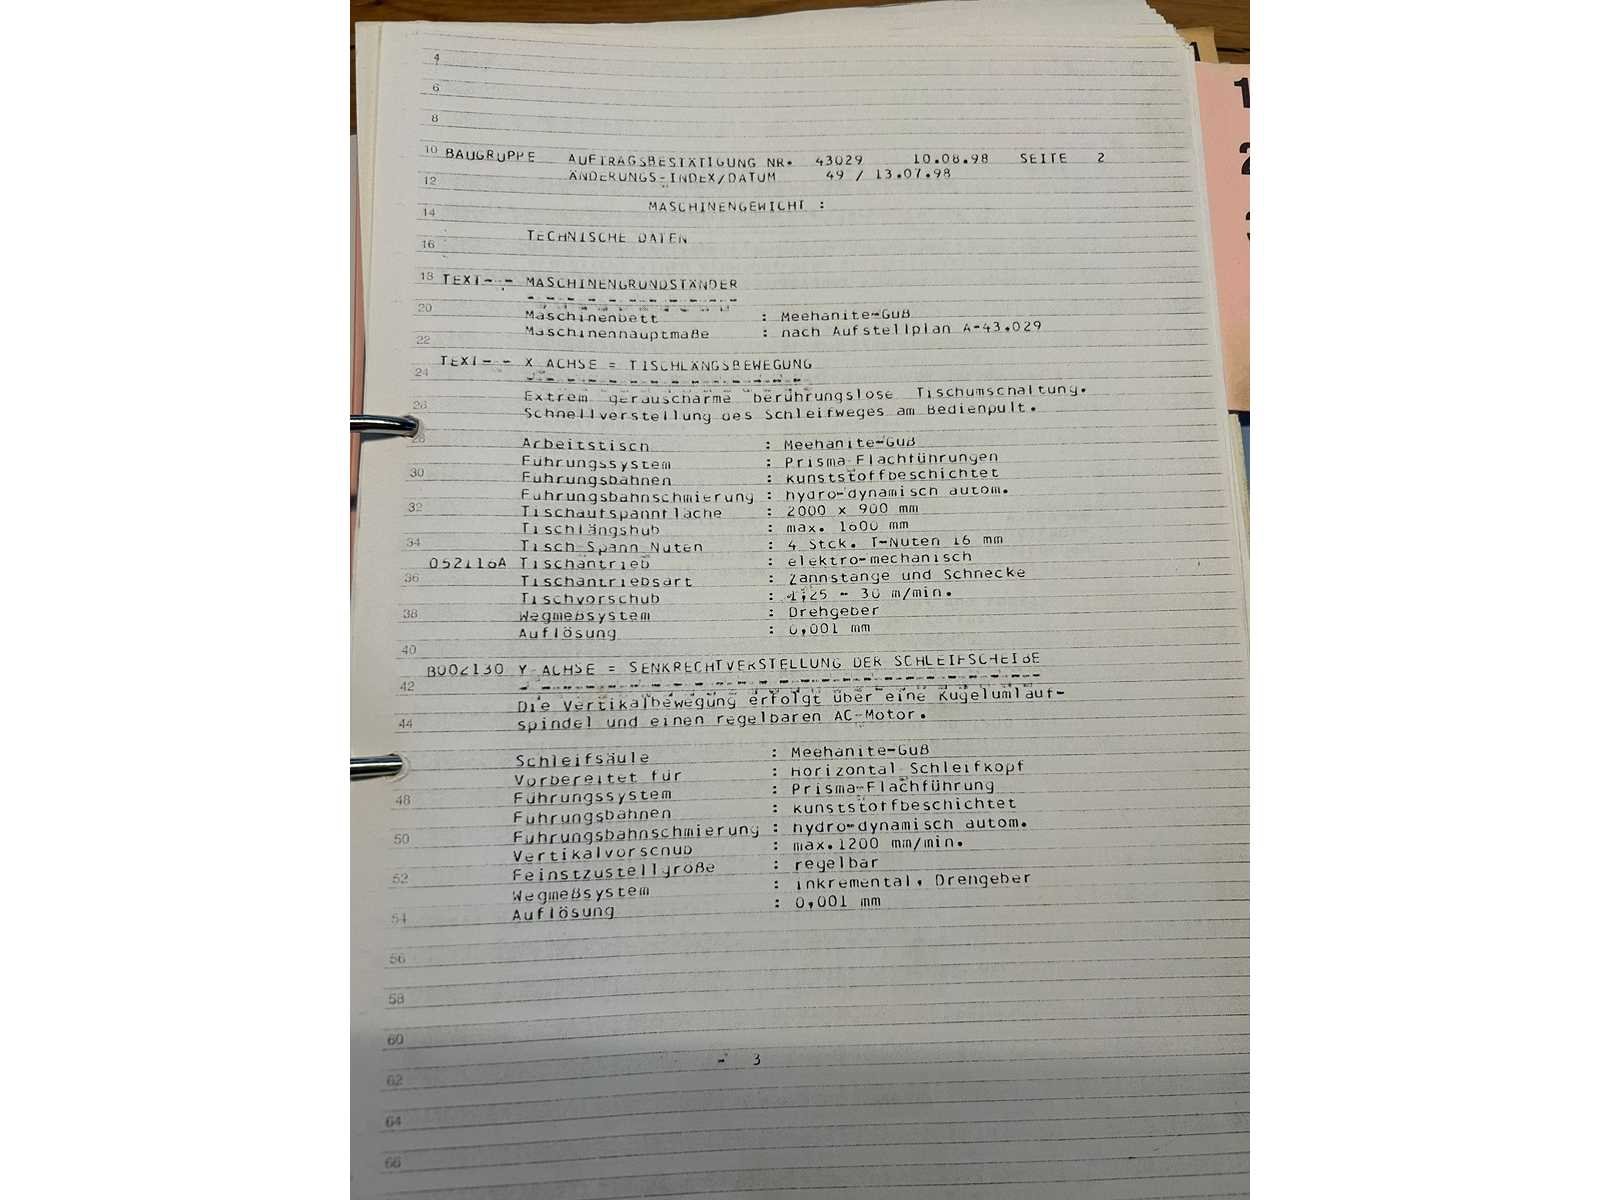 4
6
8
10 BAUGRUPPE AUFTRAGSBESTÄTIGUNG NR. 43029 10.08.98 SEITE 2
12 ÄNDERUNGS-INDEX/DATUM 49 / 13.07.98
MASCHINENGEWICHT :
14
16 TECHNISCHE DATEN
18 TEXT-- MASCHINENGRUNDSTÄNDER
20 Maschinenbett : Meehanite-Guß
22 Maschinenhauptmaße : nach Aufstellplan A-43.029
TEXT-- X ACHSE = TISCHLÄNGSBEWEGUNG
24
Extrem geräuscharme berührungslose Tischumschaltung.
26 Schnellverstellung des Schleifweges am Bedienpult.
28 Arbeitstisch : Meehanite-Guß
Führungssystem : Prisma-Flachführungen
30 Führungsbahnen : kunststoffbeschichtet
Führungsbahnschmierung : hydro-dynamisch autom.
32 Tischaufspannfläche : 2000 x 900 mm
Tischlängshub : max. 1600 mm
34 Tisch-Spann Nuten : 4 Stck. T-Nuten 16 mm
052116A Tischantrieb : elektro-mechanisch
36 Tischantriebsart : Zahnstange und Schnecke
Tischvorschub : 1,25 - 30 m/min.
38 Wegmeßsystem : Drehgeber
Auflösung : 0,001 mm
40
B002130 Y-ACHSE = SENKRECHTVERSTELLUNG DER SCHLEIFSCHEIBE
42
Die Vertikalbewegung erfolgt über eine Kugelumlauf-
44 spindel und einen regelbaren AC-Motor.
Schleifsäule : Meehanite-Guß
Vorbereitet für : Horizontal-Schleifkopf
48 Führungssystem : Prisma-Flachführung
Führungsbahnen : kunststoffbeschichtet
50 Führungsbahnschmierung : hydro-dynamisch autom.
Vertikalvorschub : max.1200 mm/min.
52 Feinstzustellgröße : regelbar
Wegmeßsystem : inkremental, Drehgeber
54 Auflösung : 0,001 mm
56
58
60
- 3
62
64
66
1
2
3